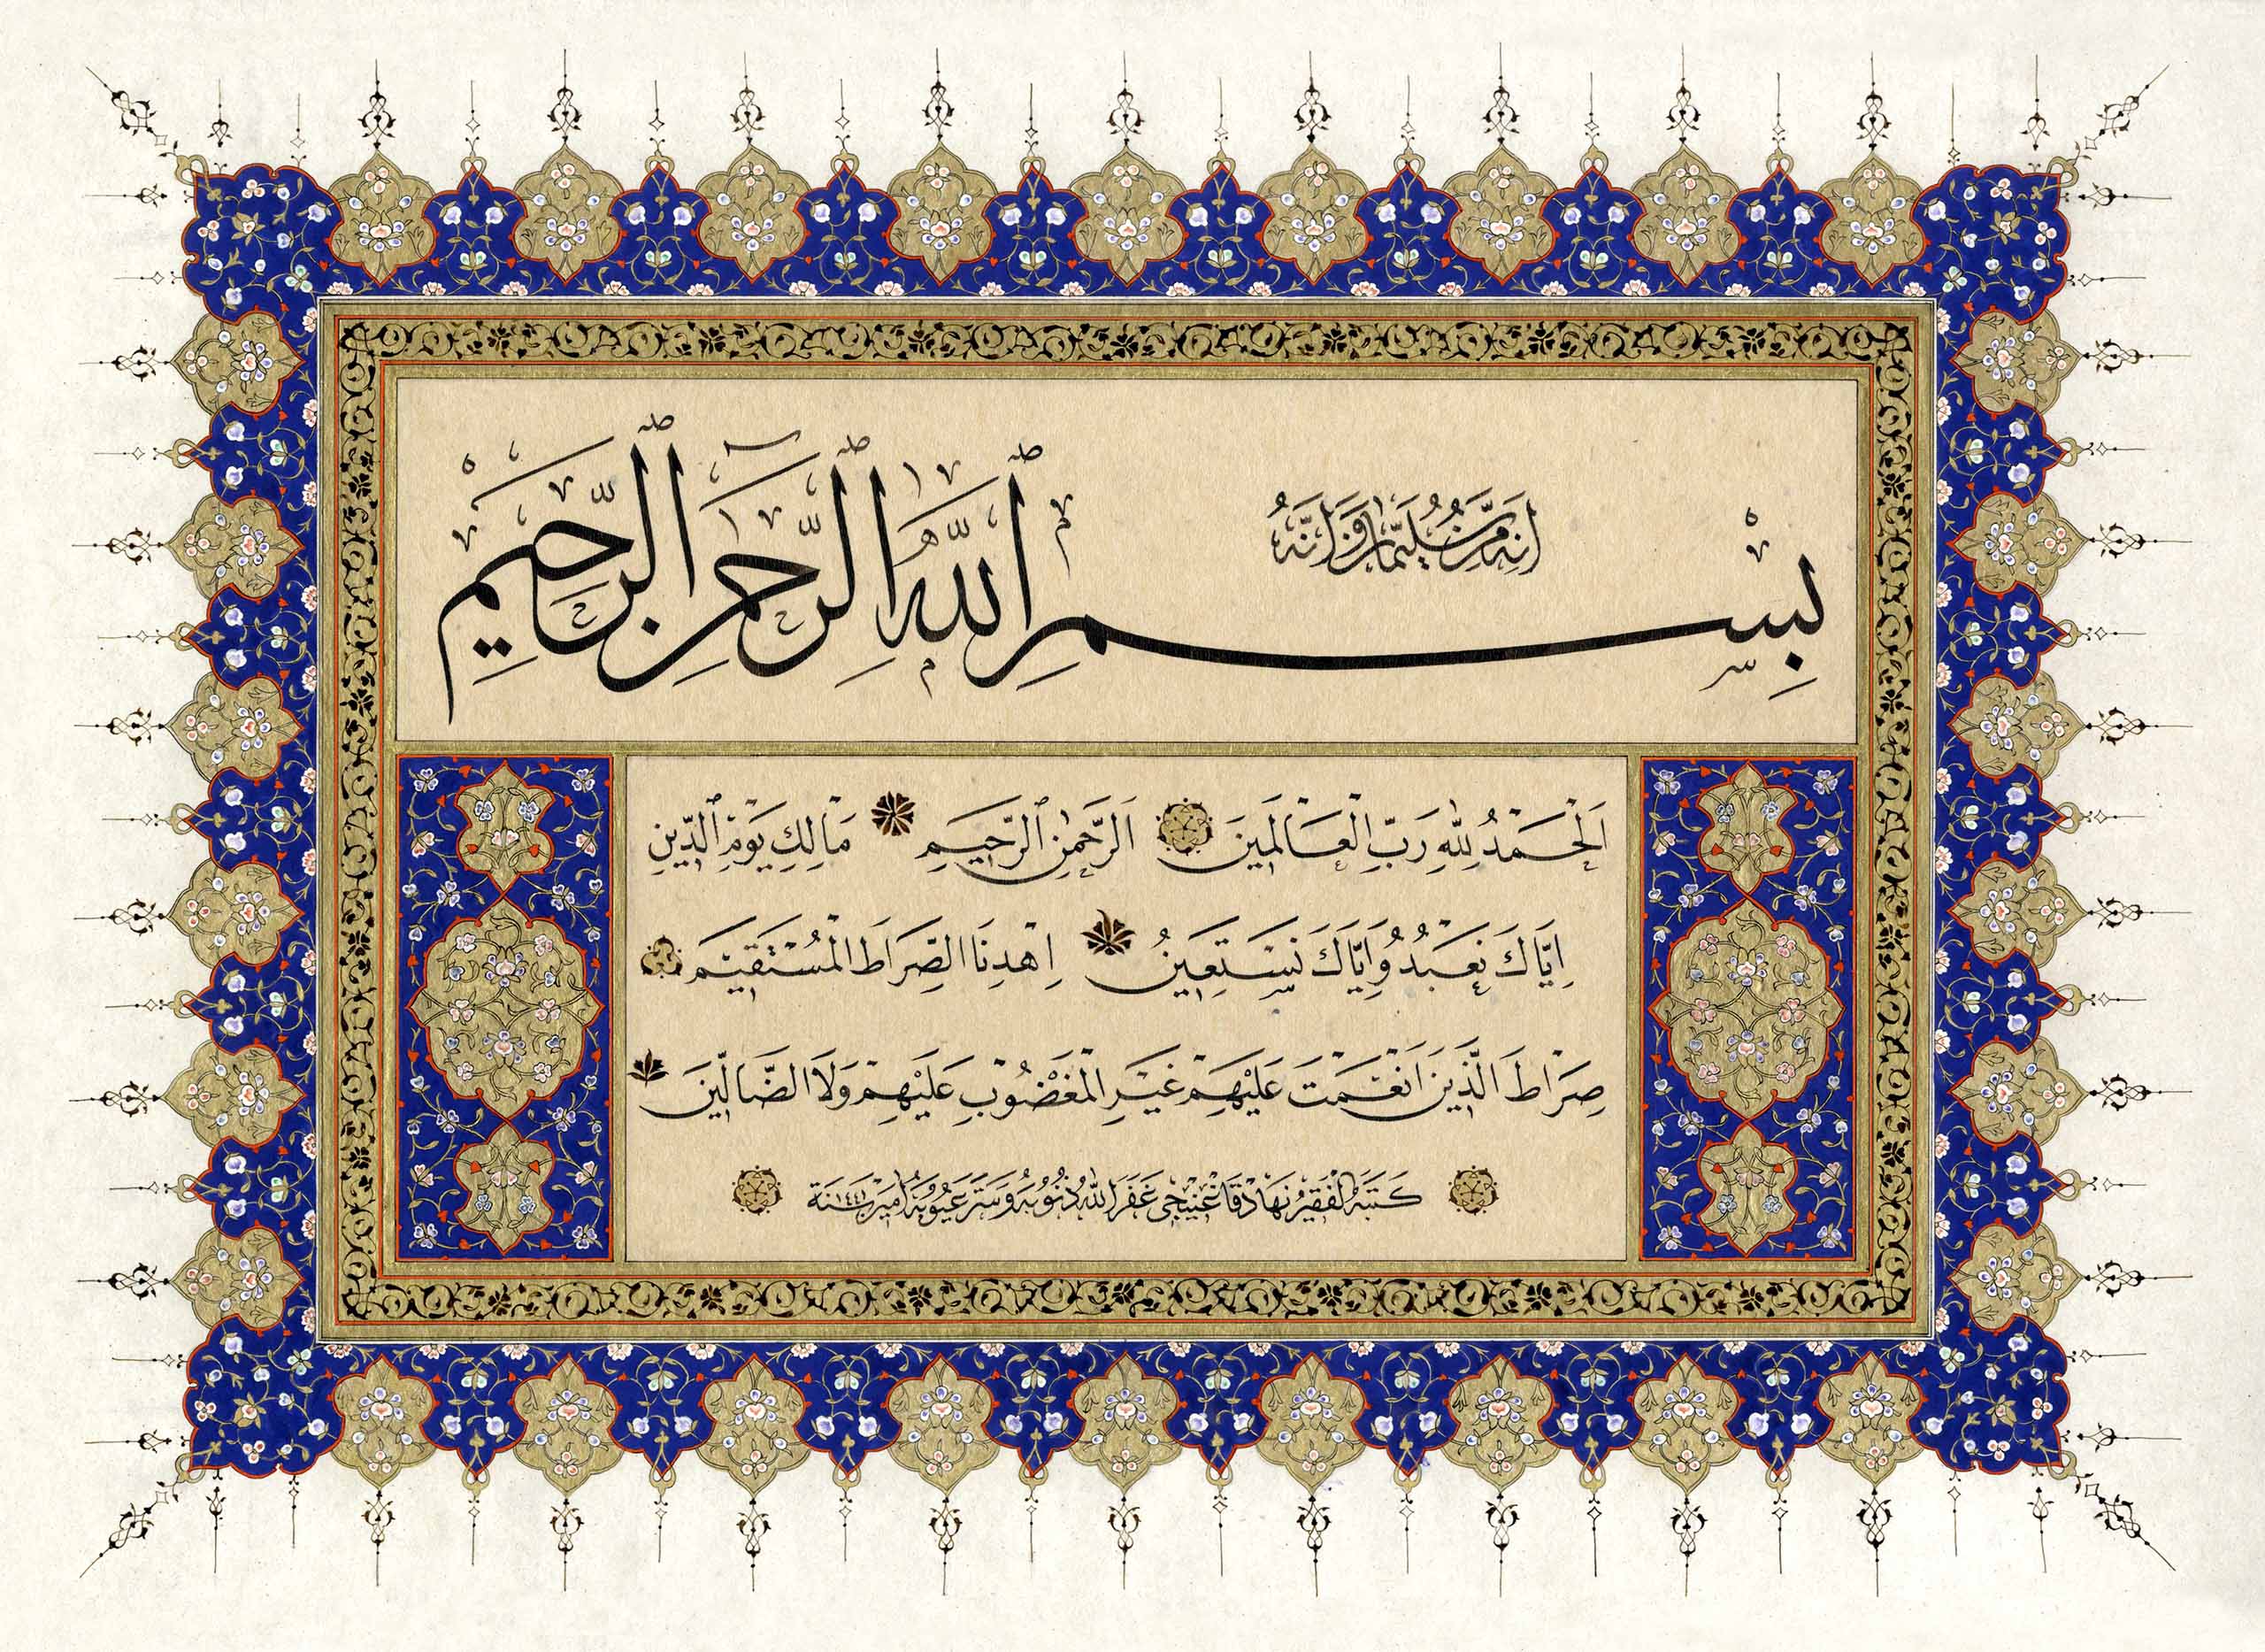 إِنَّهُ مِنْ سُلَيْمَانَ وَإِنَّهُ
بِسْمِ ٱللَّهِ ٱلرَّحْمَنِ ٱلرَّحِيمِ
اَلْحَمْدُ لِلّٰهِ رَبِّ الْعَالَمِينَ اَلرَّحْمٰنِ ٱلرَّحِيمِ مَالِكِ يَوْمِ ٱلدِّينِ
اِيَّاكَ نَعْبُدُ وَاِيَّاكَ نَسْتَعِينُ اِهْدِنَا الصِّرَاطَ الْمُسْتَقِيمَ
صِرَاطَ الَّذِينَ اَنْعَمْتَ عَلَيْهِمْ غَيْرِ الْمَغْضُوبِ عَلَيْهِمْ وَلَا الضَّالِّينَ
كَتَبَهُ الْفَقِيرُ نِهَادْ قَاغْنِيجِي غَفَرَ اللّٰهُ ذُنُوبَهُ وَسَتَرَ عُيُوبَهُ اٰمِين سَنَة ١٤٤١